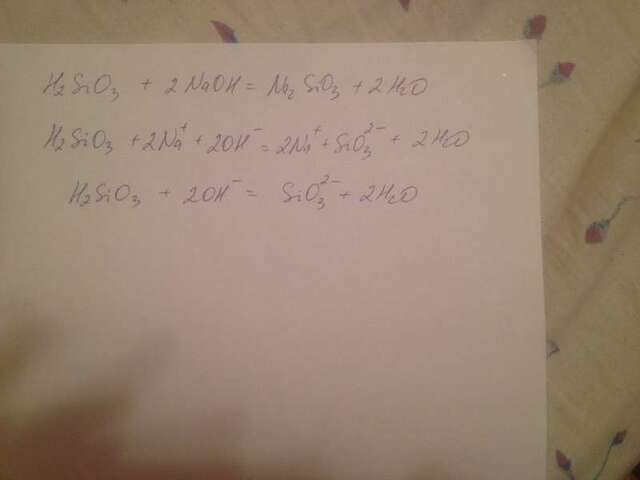 H₂SiO₃ + 2NaOH = Na₂SiO₃ + 2H₂O
H₂SiO₃ + 2Na⁺ + 2OH⁻ = 2Na⁺ + SiO₃²⁻ + 2H₂O
H₂SiO₃ + 2OH⁻ = SiO₃²⁻ + 2H₂O